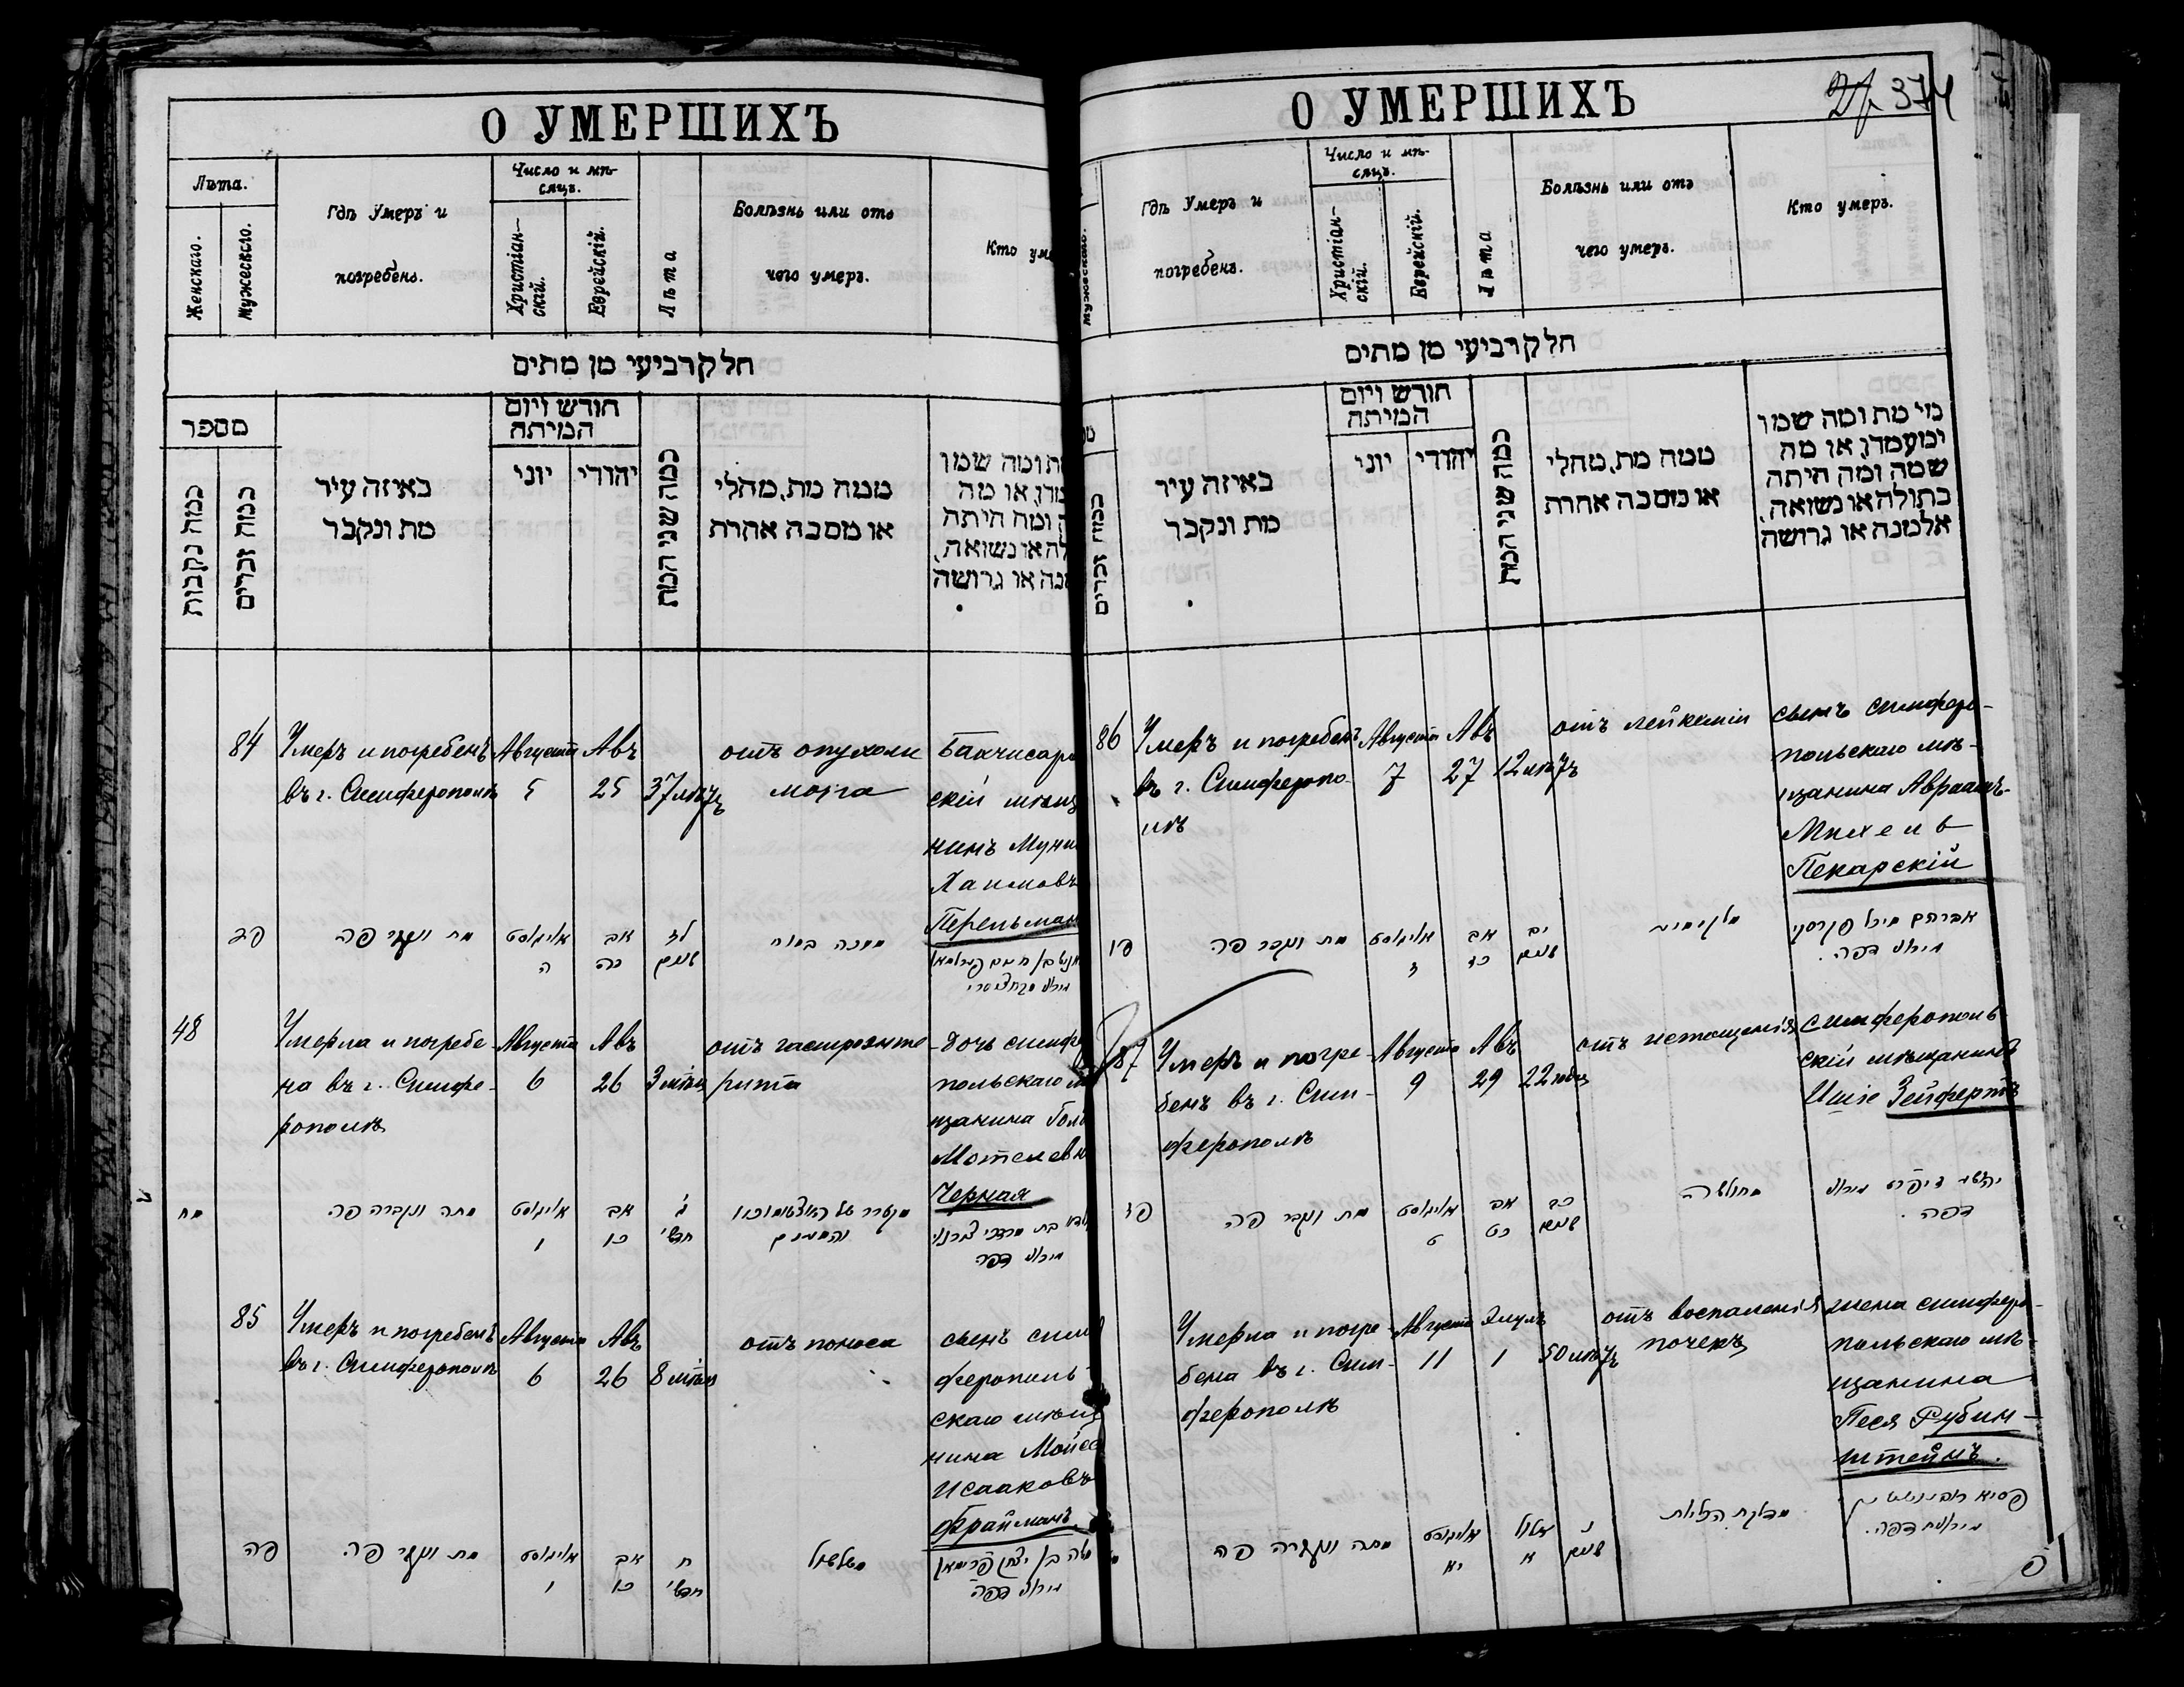 О УМЕРШИХЪ
Лѣта.
Женскаго.
Мужескаго.
Гдѣ Умеръ и
погребенъ.
Число и мѣ-
сяцъ.
Христіан-
скій.
Еврейскій.
Лѣта
Болѣзнь или отъ
чего умеръ.
Кто уме
חלק רביעי מן מתים
מספר
כמה נקבות
כמה זכרים
באיזה עיר
מת ונקבר
חודש ויום
המיתה
יוני
יהודי
כמה שני המת
ממה מת, מחלי
או מסבה אחרת
ת ומה שמו
מדו, או מה
ומה היתה
לה או נשואה,
נה או גרושה
84
Умеръ и погребенъ
въ г. Симферополѣ
Августа
5
Авъ
25
37 лѣтъ
отъ опухоли
мозга
Бахчисарай
скій мѣщ
нинъ Муни
Хаимовъ
Перельман
פד
מת ונקבר פה
אויגוסט
ה
אב
כה
לז
שנים
48
Умерла и погребе-
на въ г. Симфе-
рополѣ
Августа
6
Авъ
26
3 мѣсяц
отъ гастроэнте-
рита
дочь симфе
польскаго м
щанина Гол
Мотелевна
Черная
מח
מתה ונקברה פה
אויגוסט
ו
אב
כו
ג
חדשי
85
Умеръ и погребенъ
въ г. Симферополѣ
Августа
6
Авъ
26
8 мѣсяц
отъ поноса
сынъ сим
ферополь
скаго мѣщ
нина Мойсе
Исааковъ
Фрайманъ
פה
מת ונקבר פה
אויגוסט
ו
אב
כו
ח
חדשי
משלשול
משה בן יצחק פריימאן
О УМЕРШИХЪ
374
Мужескаго.
Гдѣ Умеръ и
погребенъ.
Число и мѣ-
сяцъ.
Христіан-
скій.
Еврейскій.
Лѣта
Болѣзнь или отъ
чего умеръ.
Кто умеръ.
חלק רביעי מן מתים
כמה זכרים
באיזה עיר
מת ונקבר
חודש ויום
המיתה
יוני
יהודי
כמה שני המת
ממה מת, מחלי
או מסבה אחרת
מי מת ומה שמו
ומעמדו, או מה
שמה ומה היתה
בתולה או נשואה,
אלמנה או גרושה
86
Умеръ и погребенъ
въ г. Симферопо-
лѣ
Августа
7
Авъ
27
12 лѣтъ
отъ лейкеміи
сынъ симферо-
польскаго мѣ-
щанина Авраамъ-
Михель
Пекарскій
פו
מת ונקבר פה
אויגוסט
ז
אב
כז
יב
שנים
87
Умеръ и погре-
бенъ въ г. Сим-
ферополѣ
Августа
9
Авъ
29
22 года
отъ истощенія
симферополь
скій мѣщанинъ
Ишіе Зейфертъ
פז
מת ונקבר פה
אויגוסט
ט
אב
כט
כב
שנים
מחולשה
Умерла и погре-
бена въ г. Сим-
ферополѣ
Августа
11
Элулъ
1
50 лѣтъ
отъ воспаленія
почекъ
жена симферо-
польскаго мѣ-
щанина
Песя Рубин-
штейнъ.
מתה ונקברה פה
אויגוסט
יא
אלול
א
נ
שנים
מדלקת הכליות